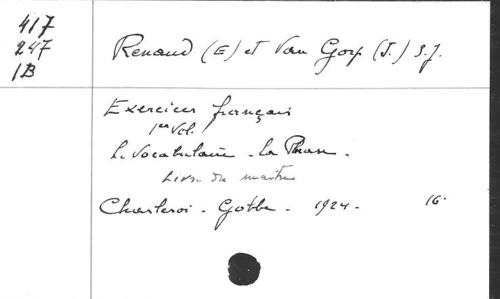 417
247
1B
Renaud (E) et Van Gorp (J.) S.J.
Exercices français
1er Vol.
Le Vocabulaire - La Phrase -
Livre du maître
Charleroi - Gobbe - 1924 - 16°